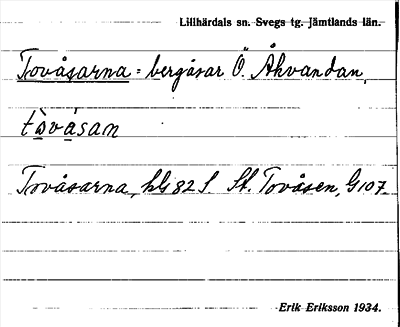 Lillhärdals sn. Svegs tg. Jämtlands län.
Tovåsarna = bergåsar Ö. Åkvandan,
tòvǻsan
Tovåsarna, kbl 82 S. St. Tovåsen, G107.
Erik Eriksson 1934.